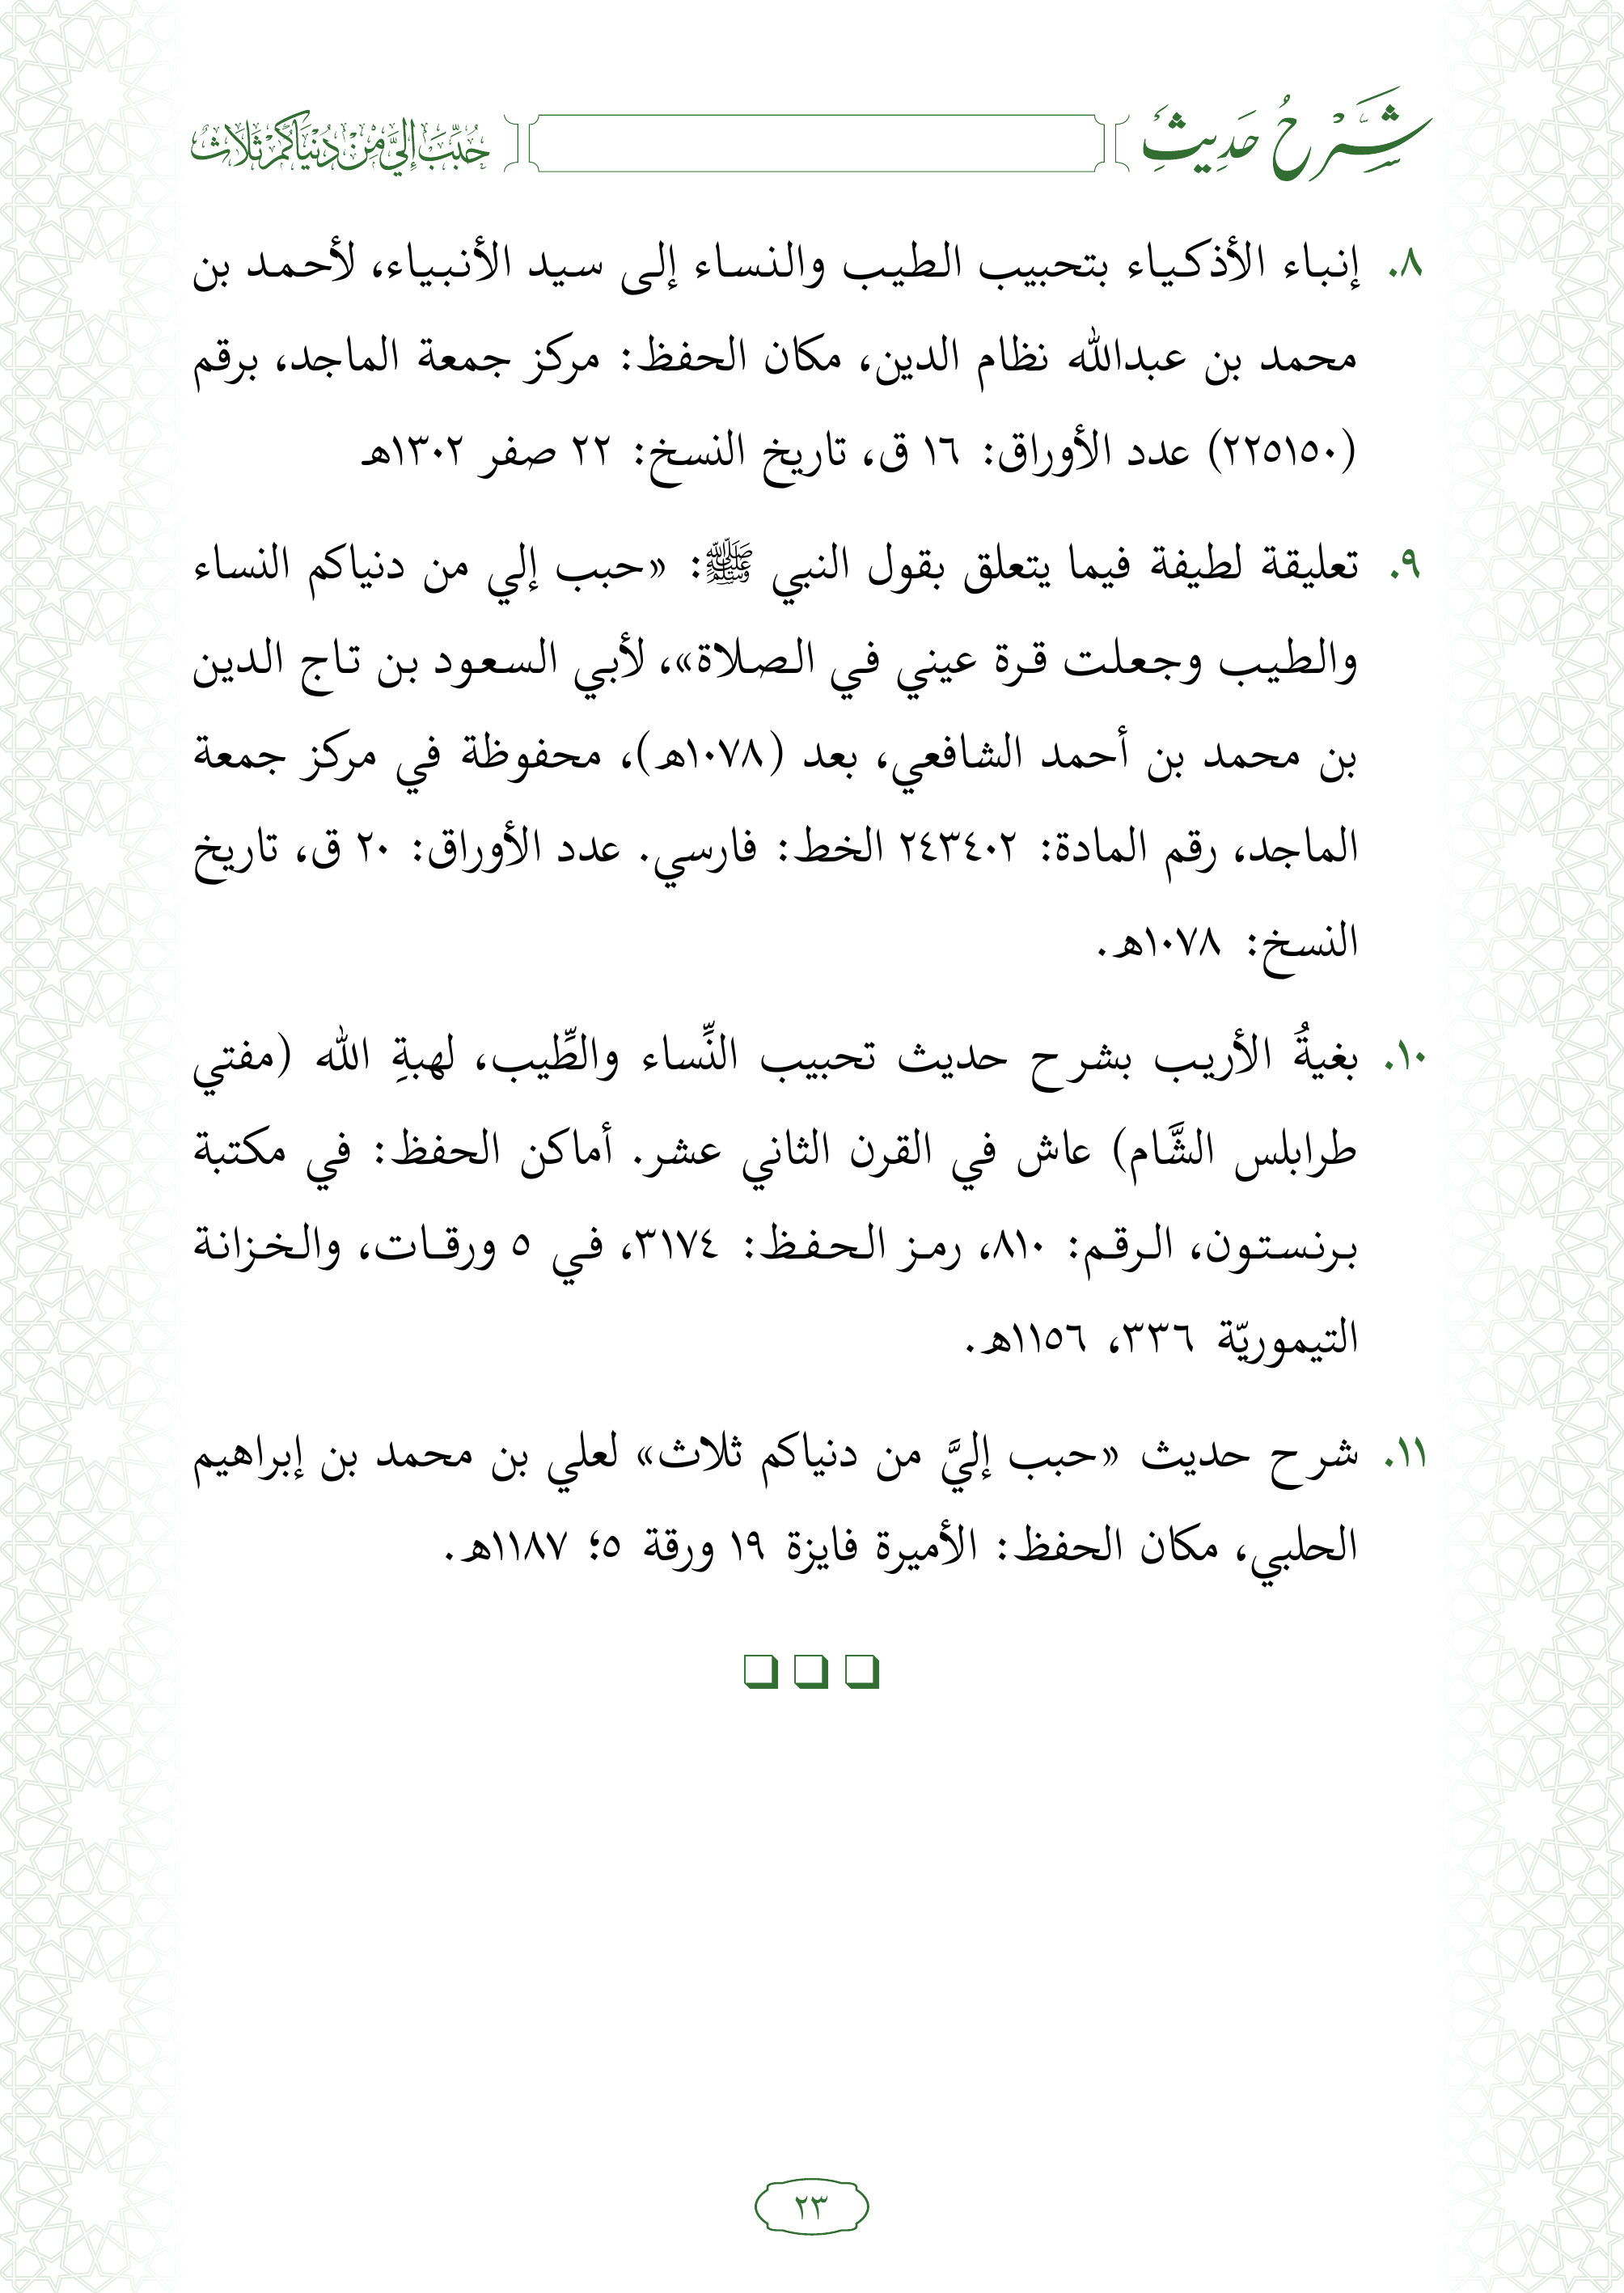 شَرْحُ حَدِيثِ
حُبِّبَ إِلَيَّ مِنْ دُنْيَاكُمْ ثَلَاثٌ
٨. إنباء الأذكياء بتحبيب الطيب والنساء إلى سيد الأنبياء، لأحمد بن
محمد بن عبدالله نظام الدين، مكان الحفظ: مركز جمعة الماجد، برقم
(٢٢٥١٥٠) عدد الأوراق: ١٦ ق، تاريخ النسخ: ٢٢ صفر ١٣٠٢هـ
٩. تعليقة لطيفة فيما يتعلق بقول النبي ﷺ: «حبب إلي من دنياكم النساء
والطيب وجعلت قرة عيني في الصلاة»، لأبي السعود بن تاج الدين
بن محمد بن أحمد الشافعي، بعد (١٠٧٨هـ)، محفوظة في مركز جمعة
الماجد، رقم المادة: ٢٤٣٤٠٢ الخط: فارسي. عدد الأوراق: ٢٠ ق، تاريخ
النسخ: ١٠٧٨هـ.
١٠. بغيةُ الأريب بشرح حديث تحبيب النِّساء والطِّيب، لهبةِ الله (مفتي
طرابلس الشَّام) عاش في القرن الثاني عشر. أماكن الحفظ: في مكتبة
برنستون، الرقم: ٨١٠، رمز الحفظ: ٣١٧٤، في ٥ ورقات، والخزانة
التيموريّة ٣٣٦، ١١٥٦هـ.
١١. شرح حديث «حبب إليَّ من دنياكم ثلاث» لعلي بن محمد بن إبراهيم
الحلبي، مكان الحفظ: الأميرة فايزة ١٩ ورقة ٥؛ ١١٨٧هـ.
٢٣